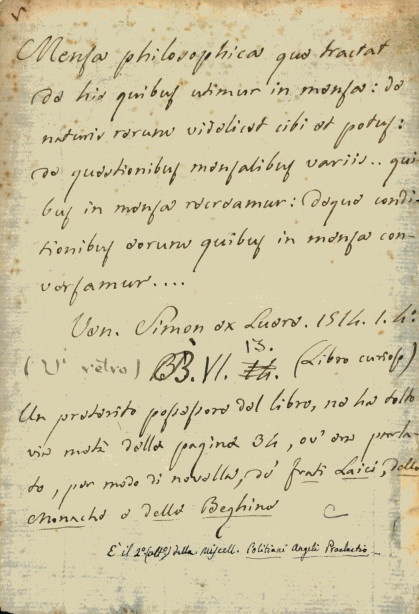 Mensa philosophica quæ tractat
de his quibus utimur in mensa: de
naturis rerum videlicet cibi et potus:
de quæstionibus mensalibus variis.. qui
bus in mensa recreamur: deque condi-
tionibus eorum quibus in mensa con-
versamur....
Ven. Simon ex Luere. 1514. 1. 4:
13.
(Vi retro) BB. VI. (Libro curioso)
Un preterito possessore del libro, ne ha tolto
via metà della pagina 34, ov' era parla-
to, per modo di novella, de' frati Laici, delle
Monache e delle Beghine
È il 2º (allo) della Miscell. Politiani Angeli Praelectio